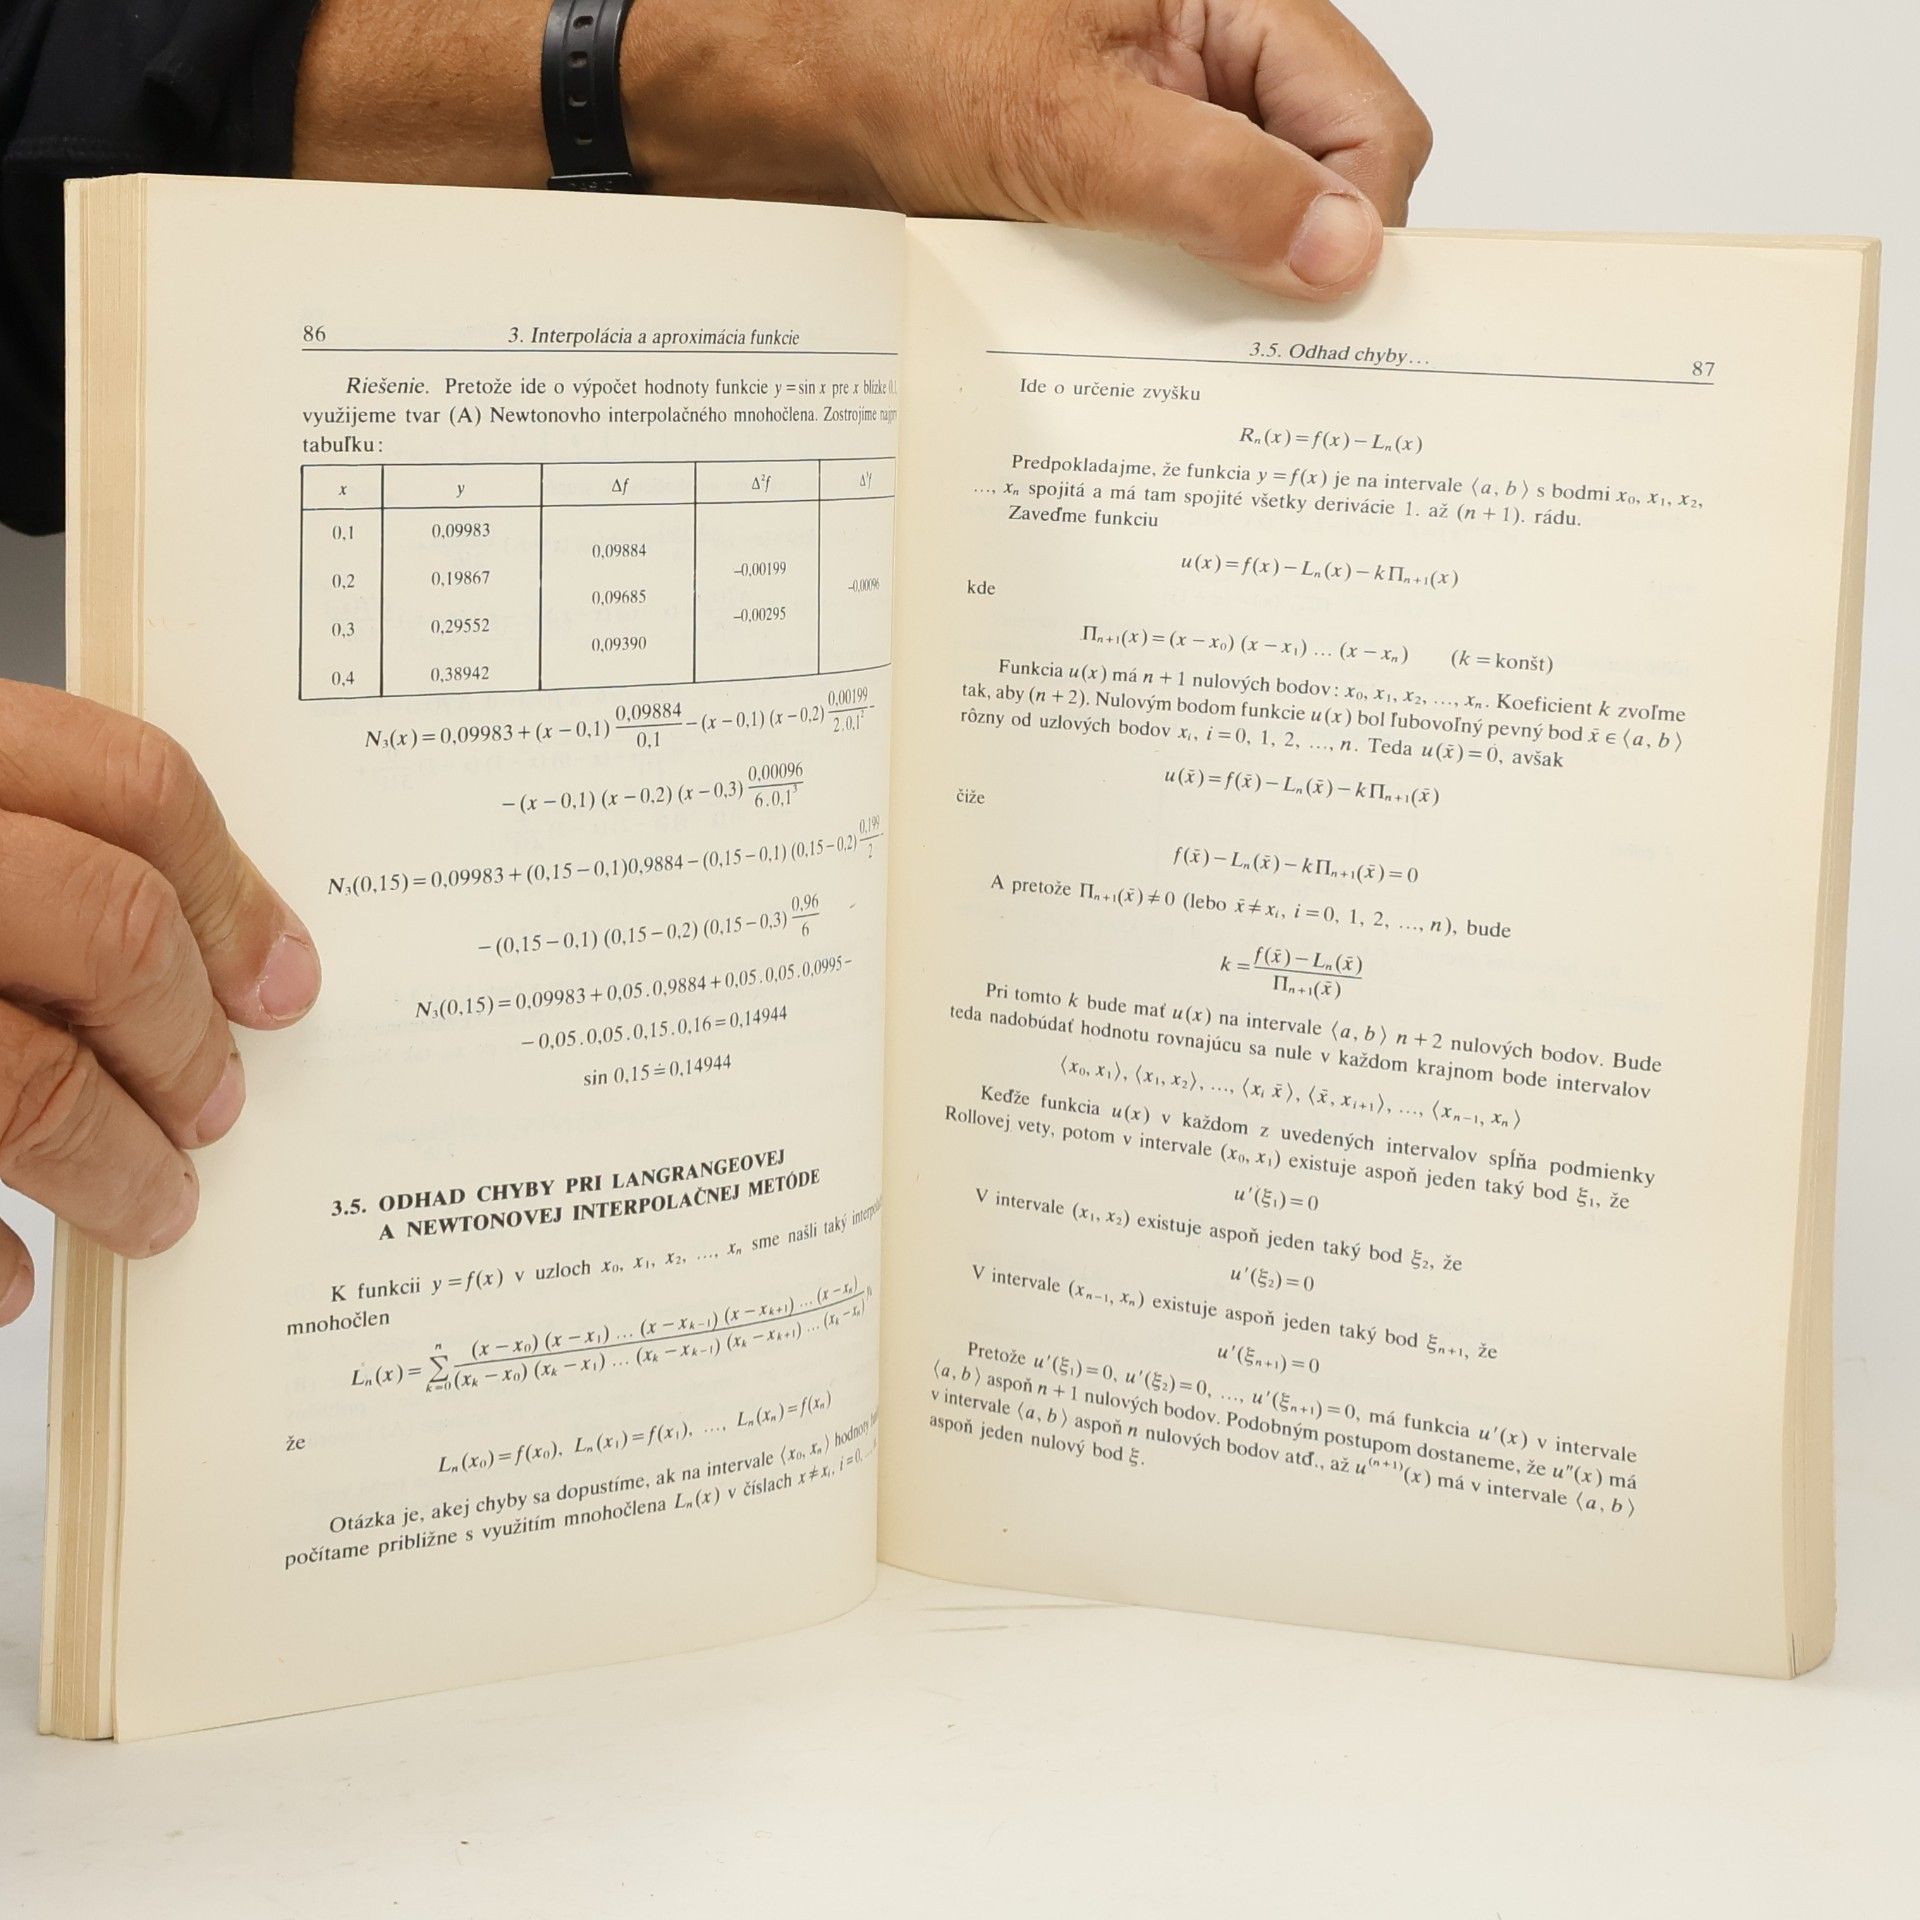 86
3. Interpolácia a aproximácia funkcie
Riešenie. Pretože ide o výpočet hodnoty funkcie y = sin x pre x blízke
využijeme tvar (A) Newtonovho interpolačného mnohočlena. Zostrojíme
tabuľku:
x y Δf Δ²f Δ³f
0,1 0,09983
0,09884
0,2 0,19867 -0,00199
0,09685 -0,00096
0,3 0,29552 -0,00295
0,09390
0,4 0,38942
N₃(x) = 0,09983 + (x − 0,1) 0,09884/0,1 − (x − 0,1) (x − 0,2) 0,00199/2.0,1² −
− (x − 0,1) (x − 0,2) (x − 0,3) 0,00096/6.0,1³
N₃(0,15) = 0,09983 + (0,15 − 0,1)0,9884 − (0,15 − 0,1) (0,15 − 0,2) 0,199/2 −
− (0,15 − 0,1) (0,15 − 0,2) (0,15 − 0,3) 0,96/6
N₃(0,15) = 0,09983 + 0,05.0,9884 + 0,05.0,05.0,0995 −
− 0,05.0,05.0,15.0,16 = 0,14944
sin 0,15 ≐ 0,14944
3.5. ODHAD CHYBY PRI LANGRANGEOVEJ
A NEWTONOVEJ INTERPOLAČNEJ METÓDE
K funkcii y = f(x) v uzloch x₀, x₁, x₂, ..., xₙ sme našli taký
mnohočlen
Lₙ(x) = Σₖ₌₀ⁿ (x − x₀) (x − x₁) ... (x − xₖ₋₁) (x − xₖ₊₁) ... (x − xₙ) / (xₖ − x₀) (xₖ − x₁) ... (xₖ − xₖ₋₁) (xₖ − xₖ₊₁) ... (xₖ − xₙ)
že
Lₙ(x₀) = f(x₀), Lₙ(x₁) = f(x₁), ..., Lₙ(xₙ) = f(xₙ)
Otázka je, akej chyby sa dopustíme, ak na intervale ⟨x₀, xₙ⟩ hodnoty
počítame približne s využitím mnohočlena Lₙ(x) v číslach x ≠ xᵢ, i = 0, ...,
3.5. Odhad chyby...
87
Ide o určenie zvyšku
Rₙ(x) = f(x) − Lₙ(x)
Predpokladajme, že funkcia y = f(x) je na intervale ⟨a, b⟩ s bodmi x₀, x₁, x₂,
..., xₙ spojitá a má tam spojité všetky derivácie 1. až (n + 1). rádu.
Zaveďme funkciu
u(x) = f(x) − Lₙ(x) − kΠₙ₊₁(x)
kde
Πₙ₊₁(x) = (x − x₀) (x − x₁) ... (x − xₙ) (k = konšt)
Funkcia u(x) má n + 1 nulových bodov: x₀, x₁, x₂, ..., xₙ. Koeficient k zvoľme
tak, aby (n + 2). Nulovým bodom funkcie u(x) bol ľubovoľný pevný bod x̄ ∈ ⟨a, b⟩
rôzny od uzlových bodov xᵢ, i = 0, 1, 2, ..., n. Teda u(x̄) = 0, avšak
u(x̄) = f(x̄) − Lₙ(x̄) − kΠₙ₊₁(x̄)
čiže
f(x̄) − Lₙ(x̄) − kΠₙ₊₁(x̄) = 0
A pretože Πₙ₊₁(x̄) ≠ 0 (lebo x̄ ≠ xᵢ, i = 0, 1, 2, ..., n), bude
k = f(x̄) − Lₙ(x̄) / Πₙ₊₁(x̄)
Pri tomto k bude mať u(x) na intervale ⟨a, b⟩ n + 2 nulových bodov. Bude
teda nadobúdať hodnotu rovnajúcu sa nule v každom krajnom bode intervalov
⟨x₀, x₁⟩, ⟨x₁, x₂⟩, ..., ⟨xᵢ x̄⟩, ⟨x̄, xᵢ₊₁⟩, ..., ⟨xₙ₋₁, xₙ⟩
Keďže funkcia u(x) v každom z uvedených intervalov spĺňa podmienky
Rollovej vety, potom v intervale (x₀, x₁) existuje aspoň jeden taký bod ξ₁, že
u′(ξ₁) = 0
V intervale (x₁, x₂) existuje aspoň jeden taký bod ξ₂, že
u′(ξ₂) = 0
V intervale (xₙ₋₁, xₙ) existuje aspoň jeden taký bod ξₙ₊₁, že
u′(ξₙ₊₁) = 0
Pretože u′(ξ₁) = 0, u′(ξ₂) = 0, ..., u′(ξₙ₊₁) = 0, má funkcia u′(x) v intervale
⟨a, b⟩ aspoň n + 1 nulových bodov. Podobným postupom dostaneme, že u″(x) má
v intervale ⟨a, b⟩ aspoň n nulových bodov atď., až u⁽ⁿ⁺¹⁾(x) má v intervale ⟨a, b⟩
aspoň jeden nulový bod ξ.